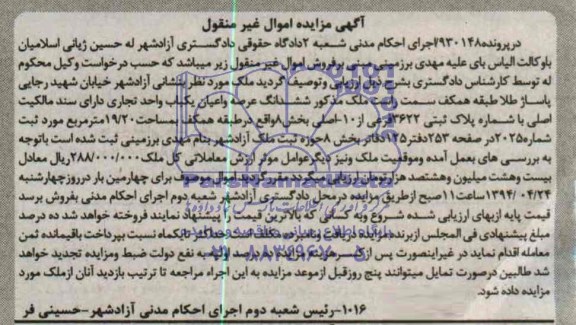 آگهی مزایده اموال غیر منقول
درپرونده۹۳۰۱۴۸/اجرای احکام مدنی شعبه ۲دادگاه حقوقی دادگستری آزادشهر له حسین ژیانی اسلامیان
باوکالت الیاس بای علیه مهدی برزمینی مبنی برفروش اموال غیر منقول زیر میباشد که حسب درخواست وکیل محکوم
له توسط کارشناس دادگستری بشرح ذیل ارزیابی وتوصیف گردید ملک مورد نظر بنشانی آزادشهر خیابان شهید رجایی
پاساژ طلا طبقه همکف سمت ملک مذکور ششدانگ عرصه واعیان یکباب واحد تجاری دارای سند مالکیت
اصلی با شماره پلاک ثبتی ۳۶۲۲فرعی از۱۰-اصلی بخش۸واقع درطبقه همکف بمساحت۱۹/۲۰مترمربع مورد ثبت
شماره۲۰۲۵در صفحه ۲۵۳دفتر۱۲۵دفاتر بخش ۸حوزه ثبت ملک آزادشهر بنام مهدی برزمینی ثبت شده است باتوجه
به بررسی های بعمل آمده وموقعیت ملک ونیز دیگرعوامل موثر ارزش معاملاتی کل ملک۲۸۸/۰۰۰/۰۰۰ریال معادل
بیست وهشت میلیون وهشتصد هزارتومان ارزیابی میگردد مقرر گردید اموال موصوف برای چهارمین بار درروزچهارشنبه
۱۳۹۴/۰۴/۲۴ساعت۱۱صبح ازطریق مزایده درمحل دادگستری آزادشهر شعبه دوم اجرای احکام مدنی بفروش برسد
قیمت پایه ازبهای ارزیابی شده شروع وبه کسانی که بالاترین قیمت را پیشنهاد نمایند فروخته خواهد شد ده درصد
مبلغ پیشنهادی فی المجلس ازبرنده مزایده دریافت وبرنده مکلف است حداکثر تایکماه نسبت بپرداخت باقیمانده ثمن
معامله اقدام نماید در غیراینصورت پس از کسرهزینه مزایده ده درصد اولیه به نفع دولت ضبط ومزایده تجدید خواهد
شد طالبین درصورت تمایل میتوانند پنج روزقبل ازموعد مزایده به این اجراء مراجعه تا ترتیب بازدید آنان ازملک مورد
مزایده داده شود.
۱۰۱۶-رئیس شعبه دوم اجرای احکام مدنی آزادشهر-حسینی فر
ParsNamadData